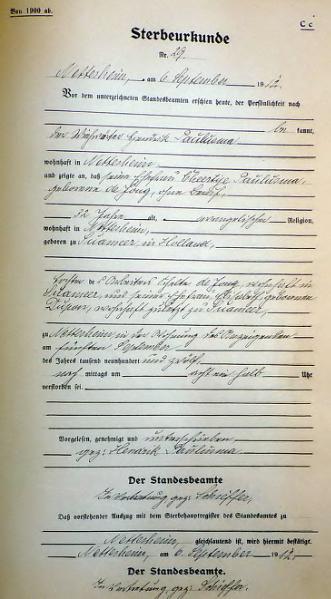 Von 1900 ab.
C c
Sterbeurkunde
Nr. 29.
Nettersheim, am 6. September 1912.
Vor dem unterzeichneten Standesbeamten erschien heute, der Persönlichkeit nach
be kannt,
der Hendrik Paulusma
wohnhaft in Nettersheim
und zeigte an, daß seine Ehefrau Paulusma,
geborene de Jong, ohne Beruf,
Jahre alt, evangelischer Religion,
wohnhaft in Nettersheim,
geboren zu Suameer in Holland,
Tochter des de Jong, wohnhaft in
Suameer, und seiner Ehefrau geborenen
wohnhaft zuletzt zu Suameer,
zu Nettersheim in der Wohnung des Anzeigenden
am fünften September
des Jahres tausend neunhundert und zwölf
nach mittags um acht ein halb Uhr
verstorben sei.
Vorgelesen, genehmigt und unterschrieben
gez: Hendrik Paulusma
Der Standesbeamte
In Vertretung gez: Schiffer,
Daß vorstehender Auszug mit dem Sterbehauptregister des Standesamtes zu
Nettersheim, gleichlautend ist, wird hiermit bestätigt.
Nettersheim, am 6. September 1912.
Der Standesbeamte.
In Vertretung gez: Schiffer